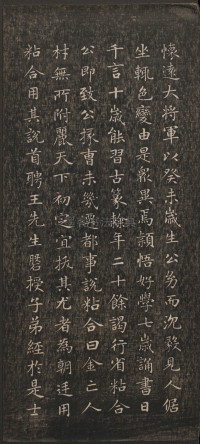 懷遠大將軍以癸未歲生公芳而沉毅見人倨
坐輒色變由是衆異焉穎悟好學七歲誦書日
千言十歲能習古篆籀年二十餘謁行省粘合
公即致公掾曹未幾遷都事說粘合曰金亡人
材無所附麗天下初定宜拔其尤者為朝廷用
粘合用其說首聘王先生磐授子弟經於是士